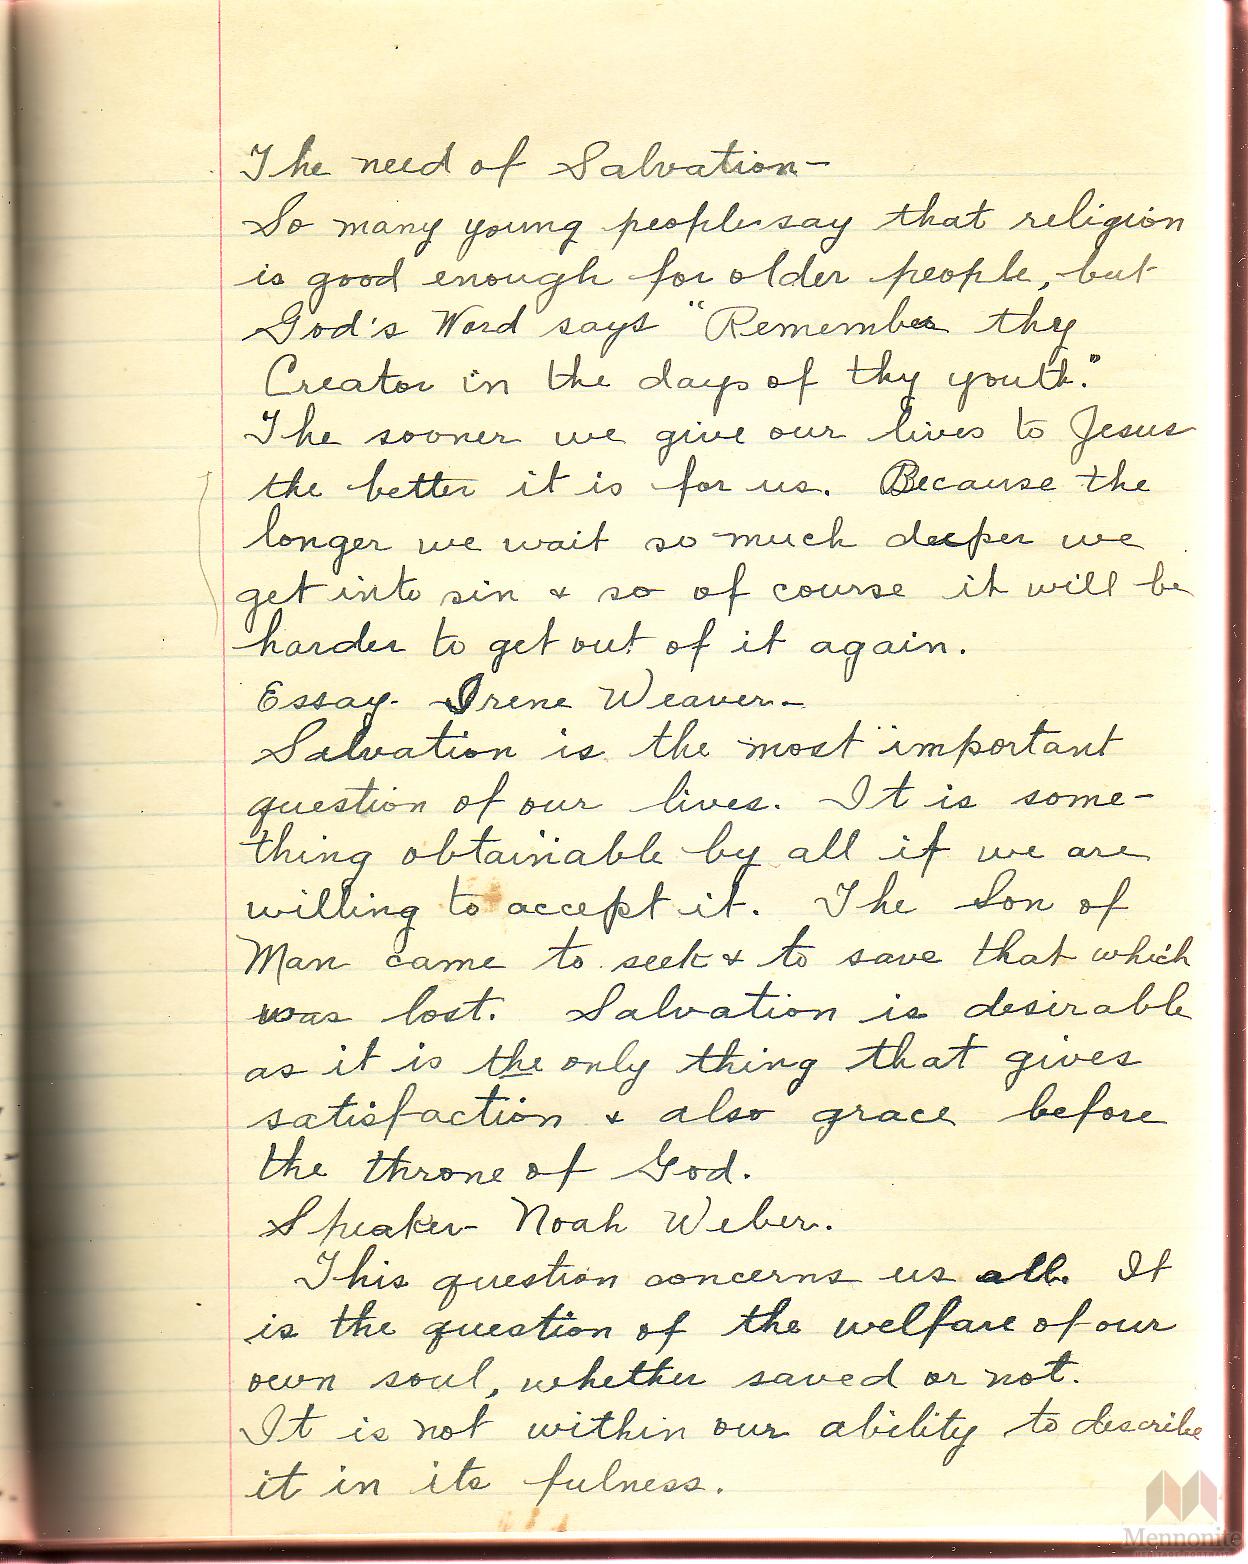 The need of Salvation-
So many young people say that religion
is good enough for older people, but
God's Word says "Remember thy
Creator in the days of thy youth."
The sooner we give our lives to Jesus
the better it is for us. Because the
longer we wait so much deeper we
get into sin & so of course it will be
harder to get out of it again.
Essay- Irene Weaver-
Salvation is the most important
question of our lives. It is some-
thing obtainable by all if we are
willing to accept it. The Son of
Man came to seek & to save that which
was lost. Salvation is desirable
as it is the only thing that gives
satisfaction & also grace before
the throne of God.
Speaker- Noah Weber.
This question concerns us all. It
is the question of the welfare of our
own soul, whether saved or not.
It is not within our ability to describe
it in its fulness.
Mennonite